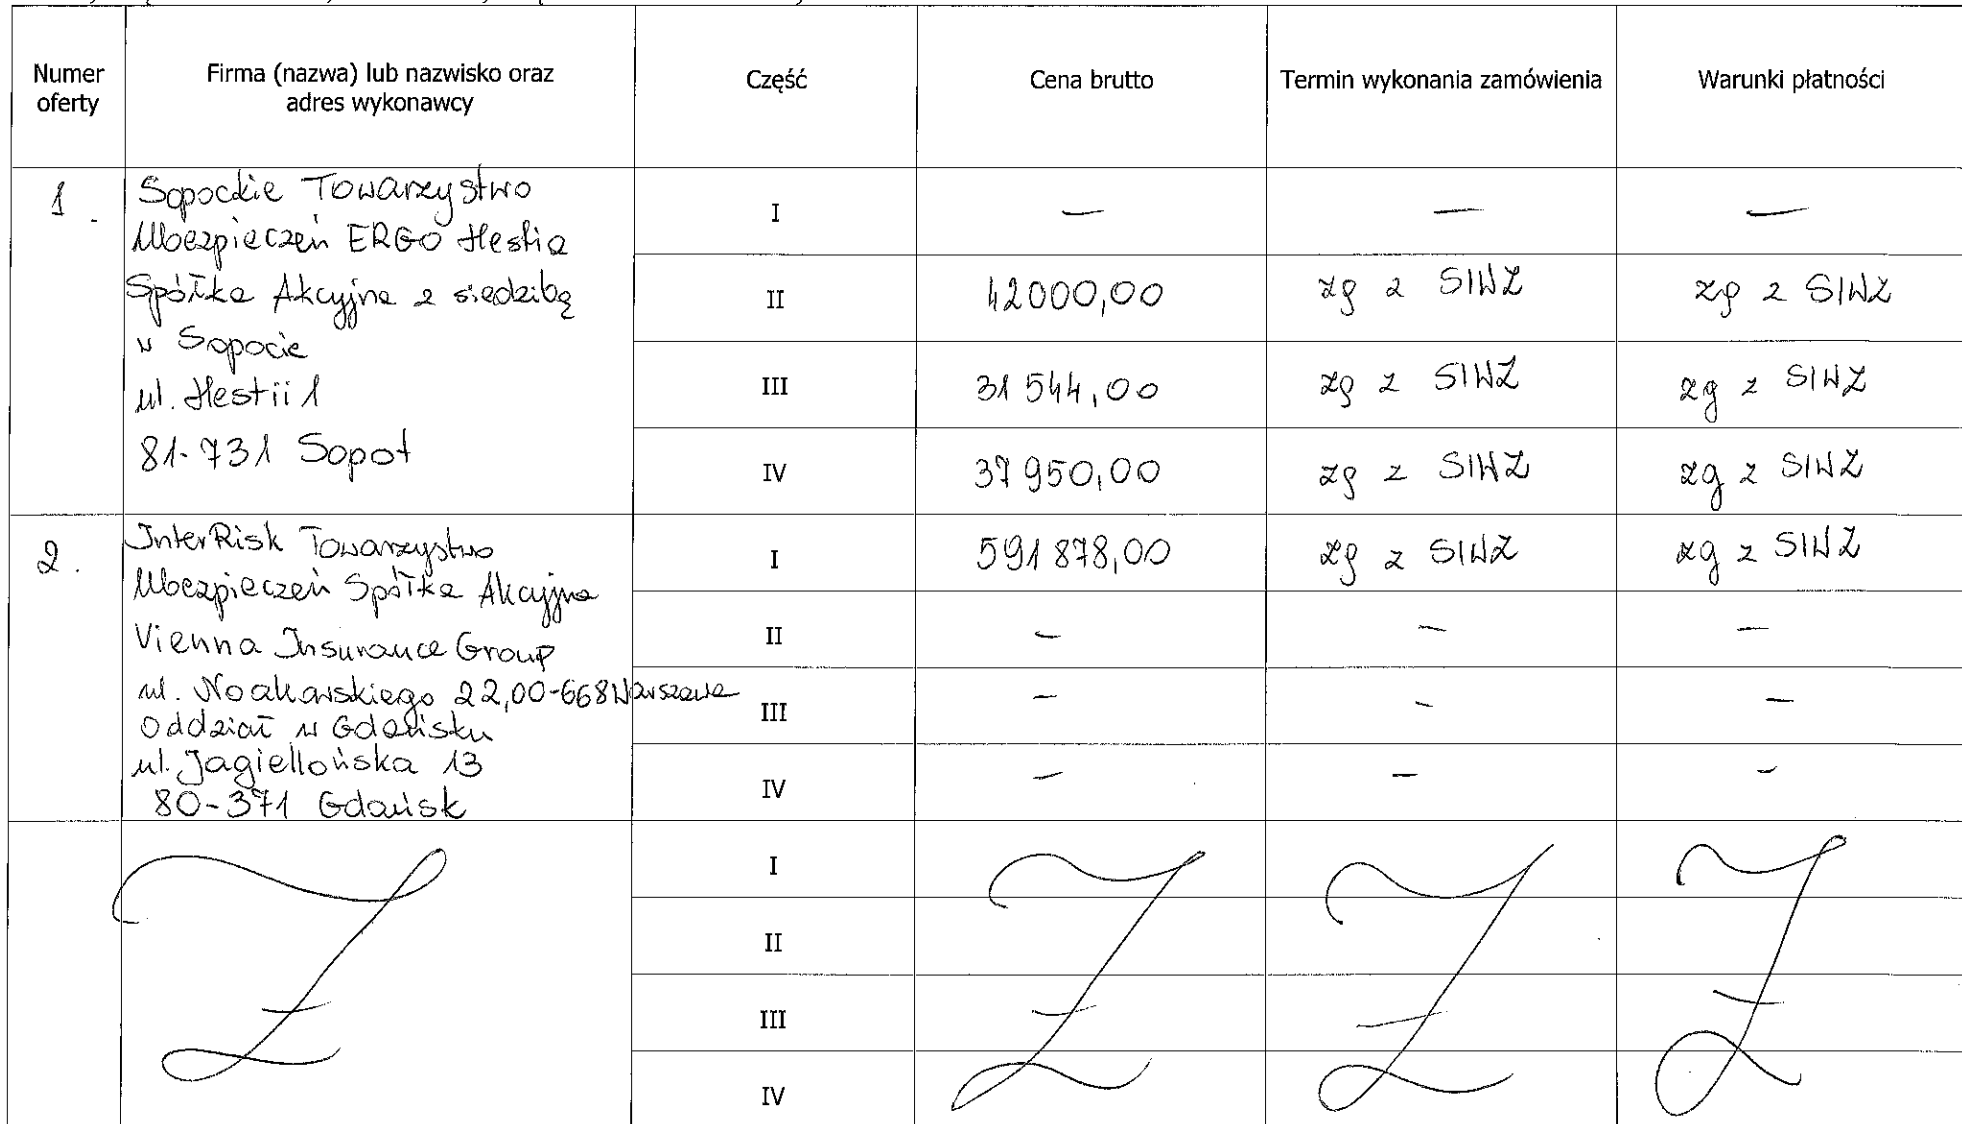 Numer oferty Firma (nazwa) lub nazwisko oraz adres wykonawcy Część Cena brutto Termin wykonania zamówienia Warunki płatności
1. Sopockie Towarzystwo
Ubezpieczeń ERGO Hestia
Spółka Akcyjna z siedzibą
w Sopocie
ul. Hestii 1
81-731 Sopot
I — — —
II 42000,00 zg z SIWZ zg z SIWZ
III 31 544,00 zg z SIWZ zg z SIWZ
IV 37 950,00 zg z SIWZ zg z SIWZ
2. InterRisk Towarzystwo
Ubezpieczeń Spółka Akcyjna
Vienna Insurance Group
ul. Noakowskiego 22, 00-668 Warszawa
Oddział w Gdańsku
ul. Jagiellońska 13
80-371 Gdańsk
I 591 878,00 zg z SIWZ zg z SIWZ
II - - -
III - - -
IV - - -
I
II
III
IV